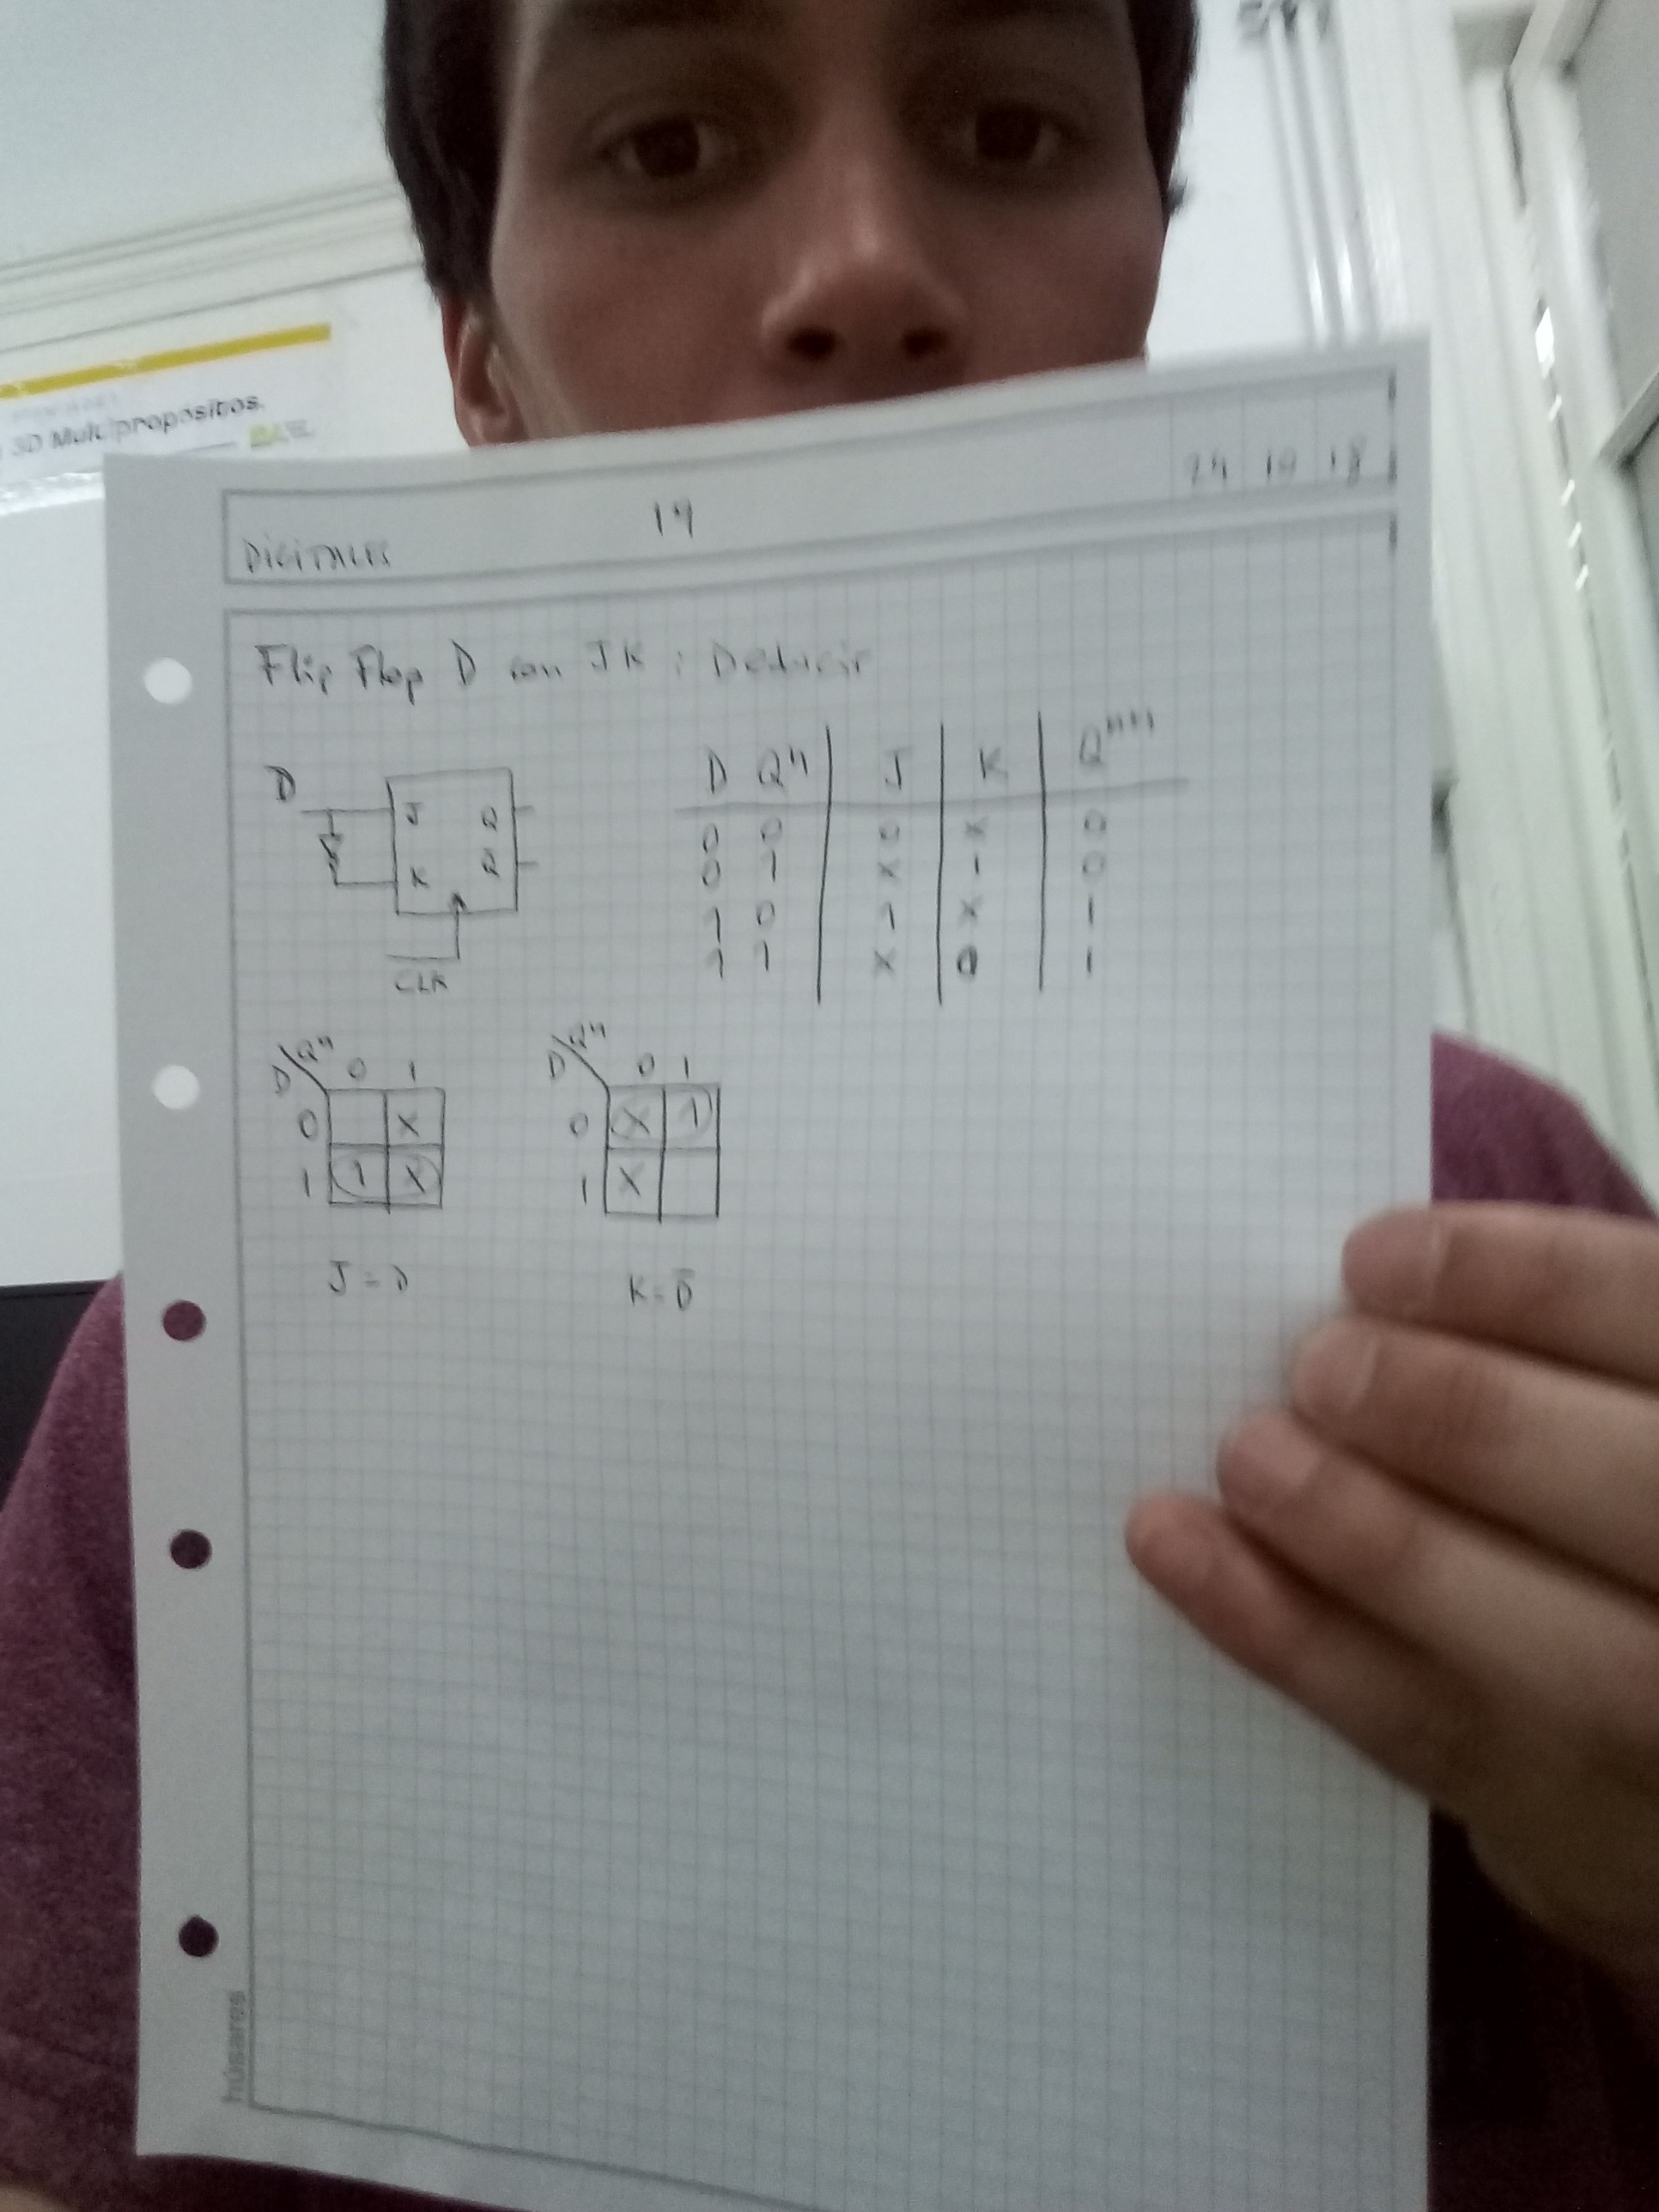 3D Multipropósitos.
19
24 10 18
DIGITALES
Flip Flop D con JK : Deducir
D
J Q
K Q̅
CLK
D Qⁿ J K Qⁿ⁺¹
0 0 0 X 0
0 1 X 1 0
1 0 1 X 1
1 1 X 0 1
D Qⁿ 0 1
0 X
1 1 X
J = D
D Qⁿ 0 1
0 X 1
1 X
K = D̅
húsares